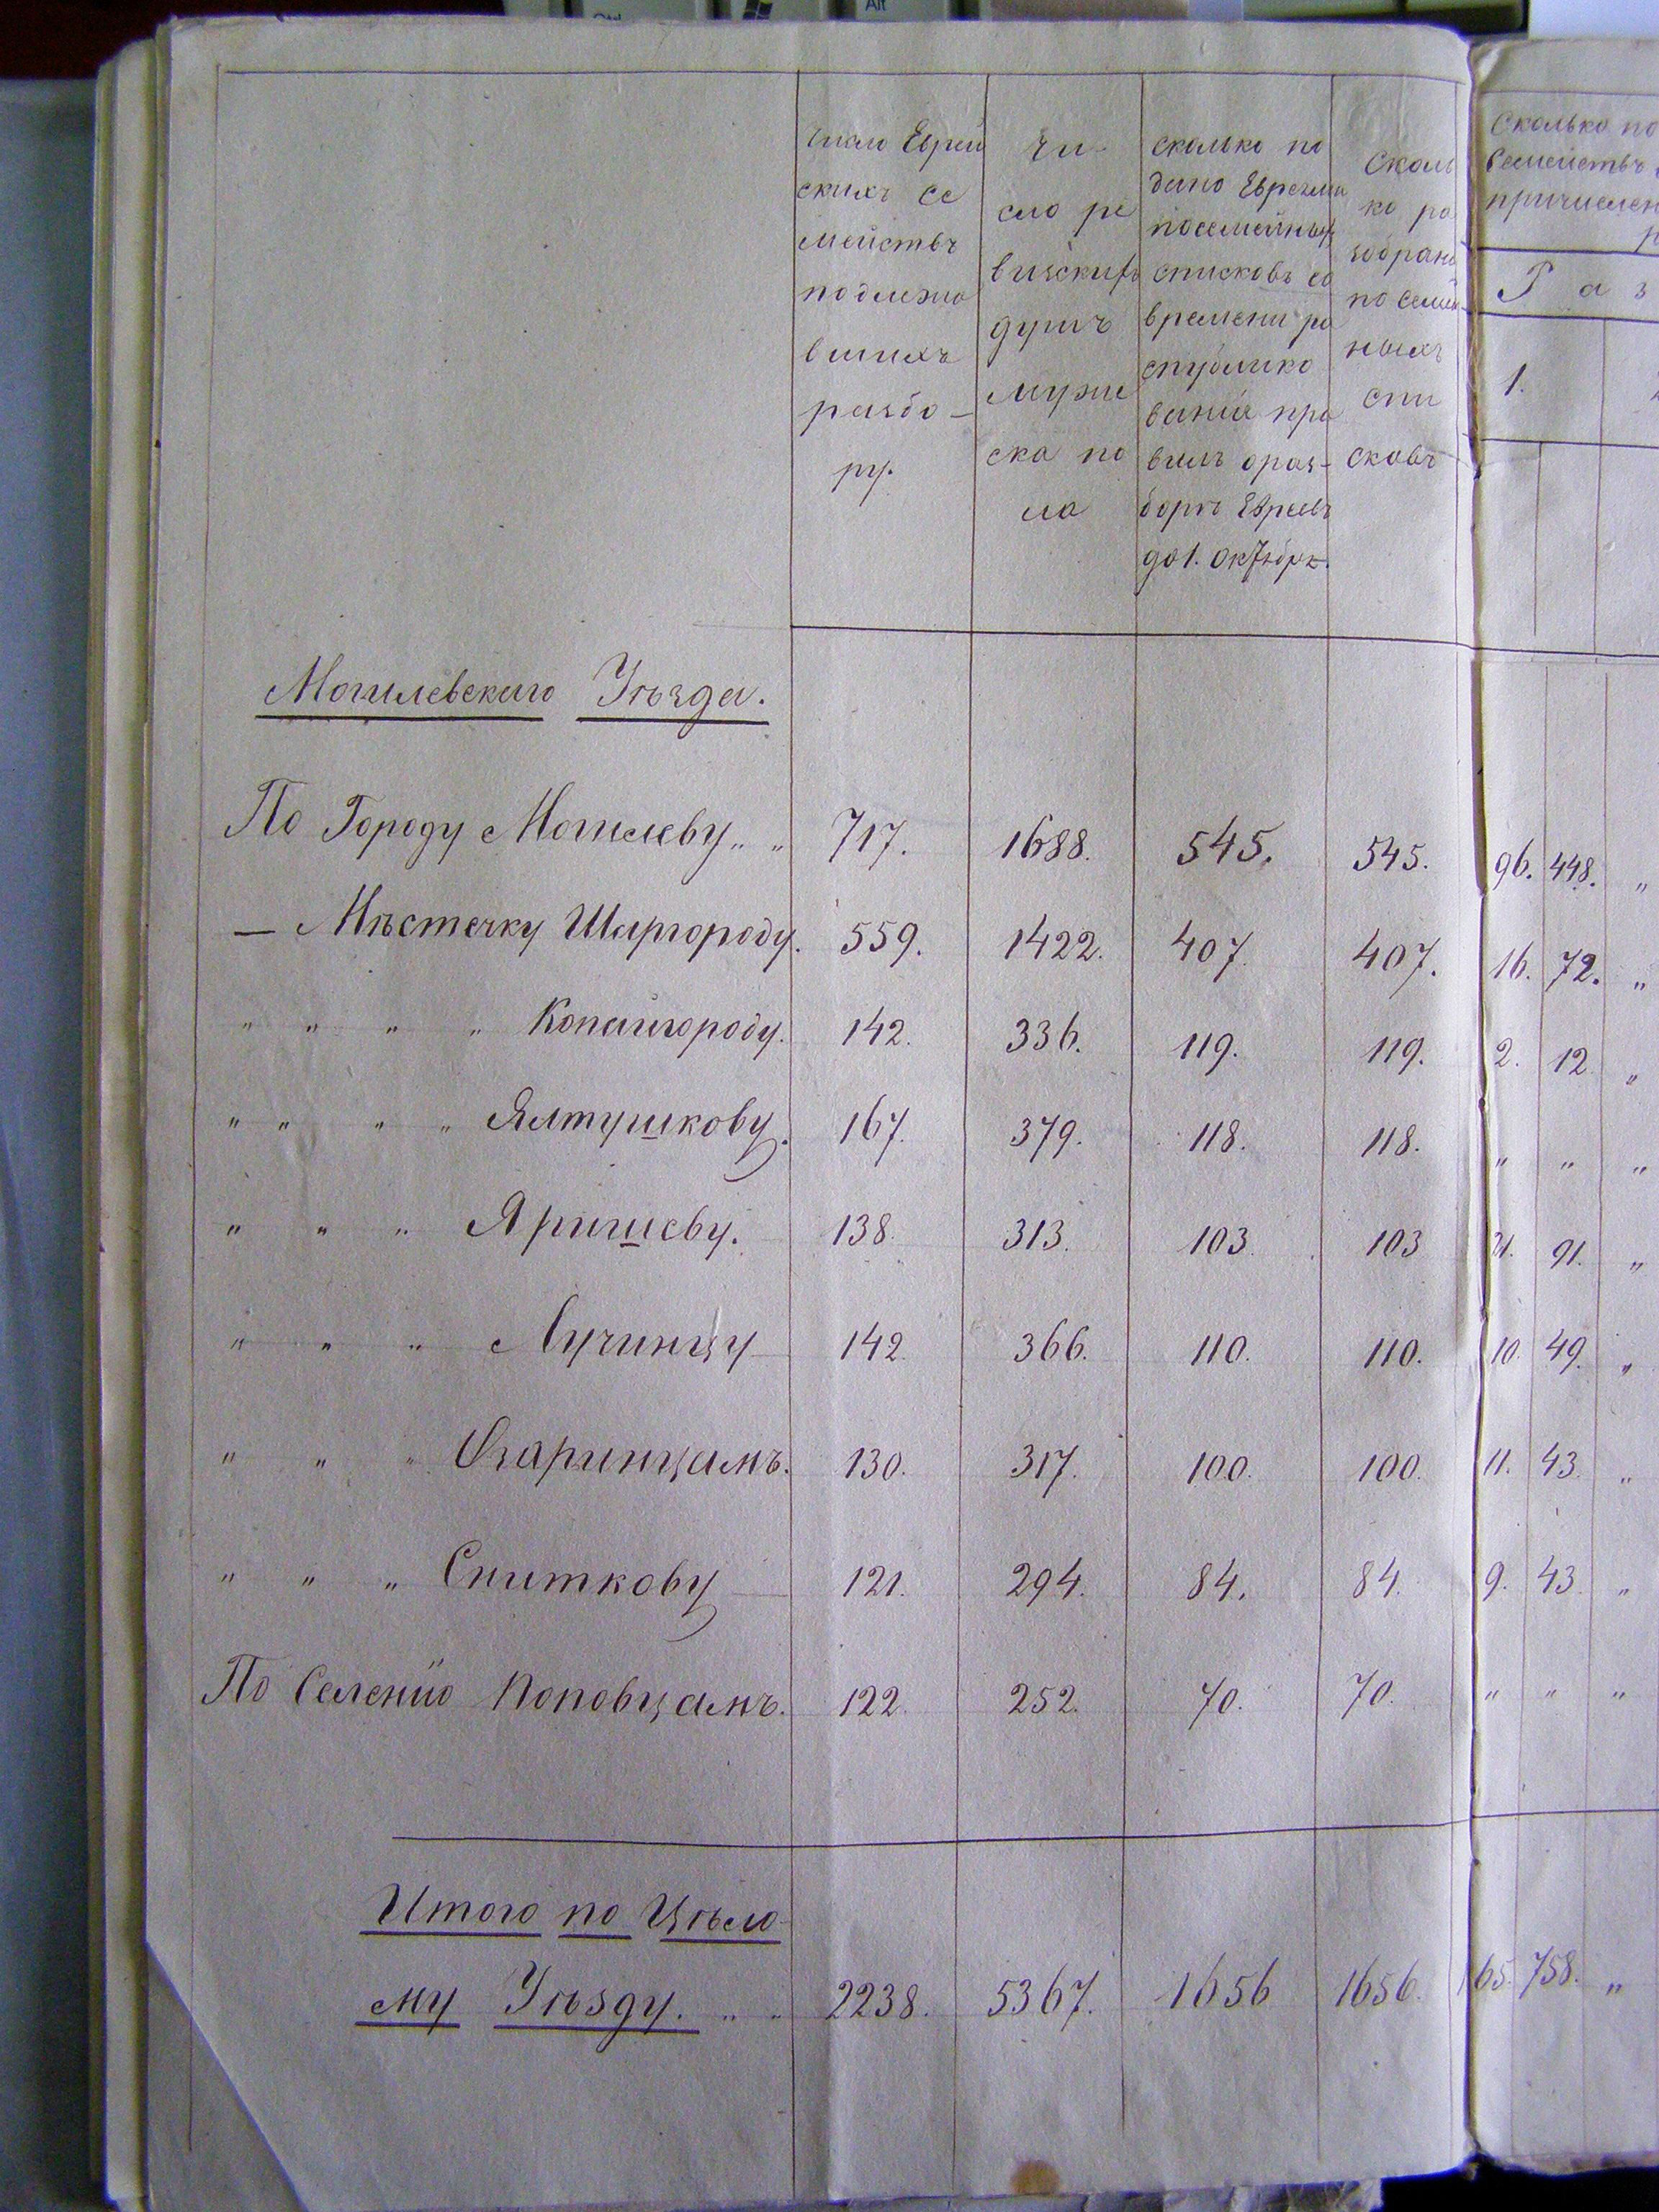 Число Еврей
скихъ се
мействъ
подлежа
вшихъ
разбо-
ру.
Чи-
сло ре
визскихъ
душъ
муже
ска по
ла
сколько по
дано Евреями
посемейныхъ
списковъ со
времени ра
спублико
ванія пра
вилъ о раз-
борѣ Евреевъ
до 1. Октября.
Сколь
ко ра
зобрано
посемей-
ныхъ
спи
сковъ
Сколько по
Семействъ
причислен
Р а з
1.
Могилевскаго Уѣзда.
По Городу Могилеву „ „ 717. 1688. 545. 545. 96. 448. „
— Мѣстечку Шаргороду. 559. 1422. 407. 407. 16. 72. „
„ „ „ „ Копайгороду. 142. 336. 119. 119. 2. 12 „
„ „ „ „ Ялтушкову. 167. 379. 118. 118. „ „ „
„ „ „ Яришеву. 138. 313. 103. 103 21. 91. „
„ „ „ Лучинцу 142. 366. 110. 110. 10. 49. „
„ „ „ Озаринцамъ. 130. 317. 100. 100. 11. 43. „
„ „ „ Сниткову 121. 294. 84. 84. 9. 43. „
По Селенію Поповцамъ. 122. 252. 70. 70. „ „ „
Итого по Цѣло-
му Уѣзду. „ „ 2238. 5367. 1656 1656. 165. 758. „